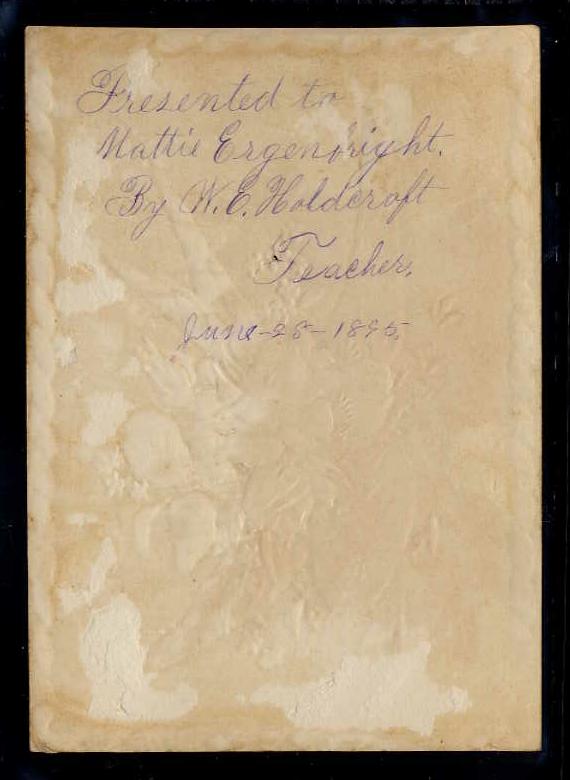 Presented to
Mattie Ergenbright.
By W. E. Holdcroft
Teacher.
June-28-1895.